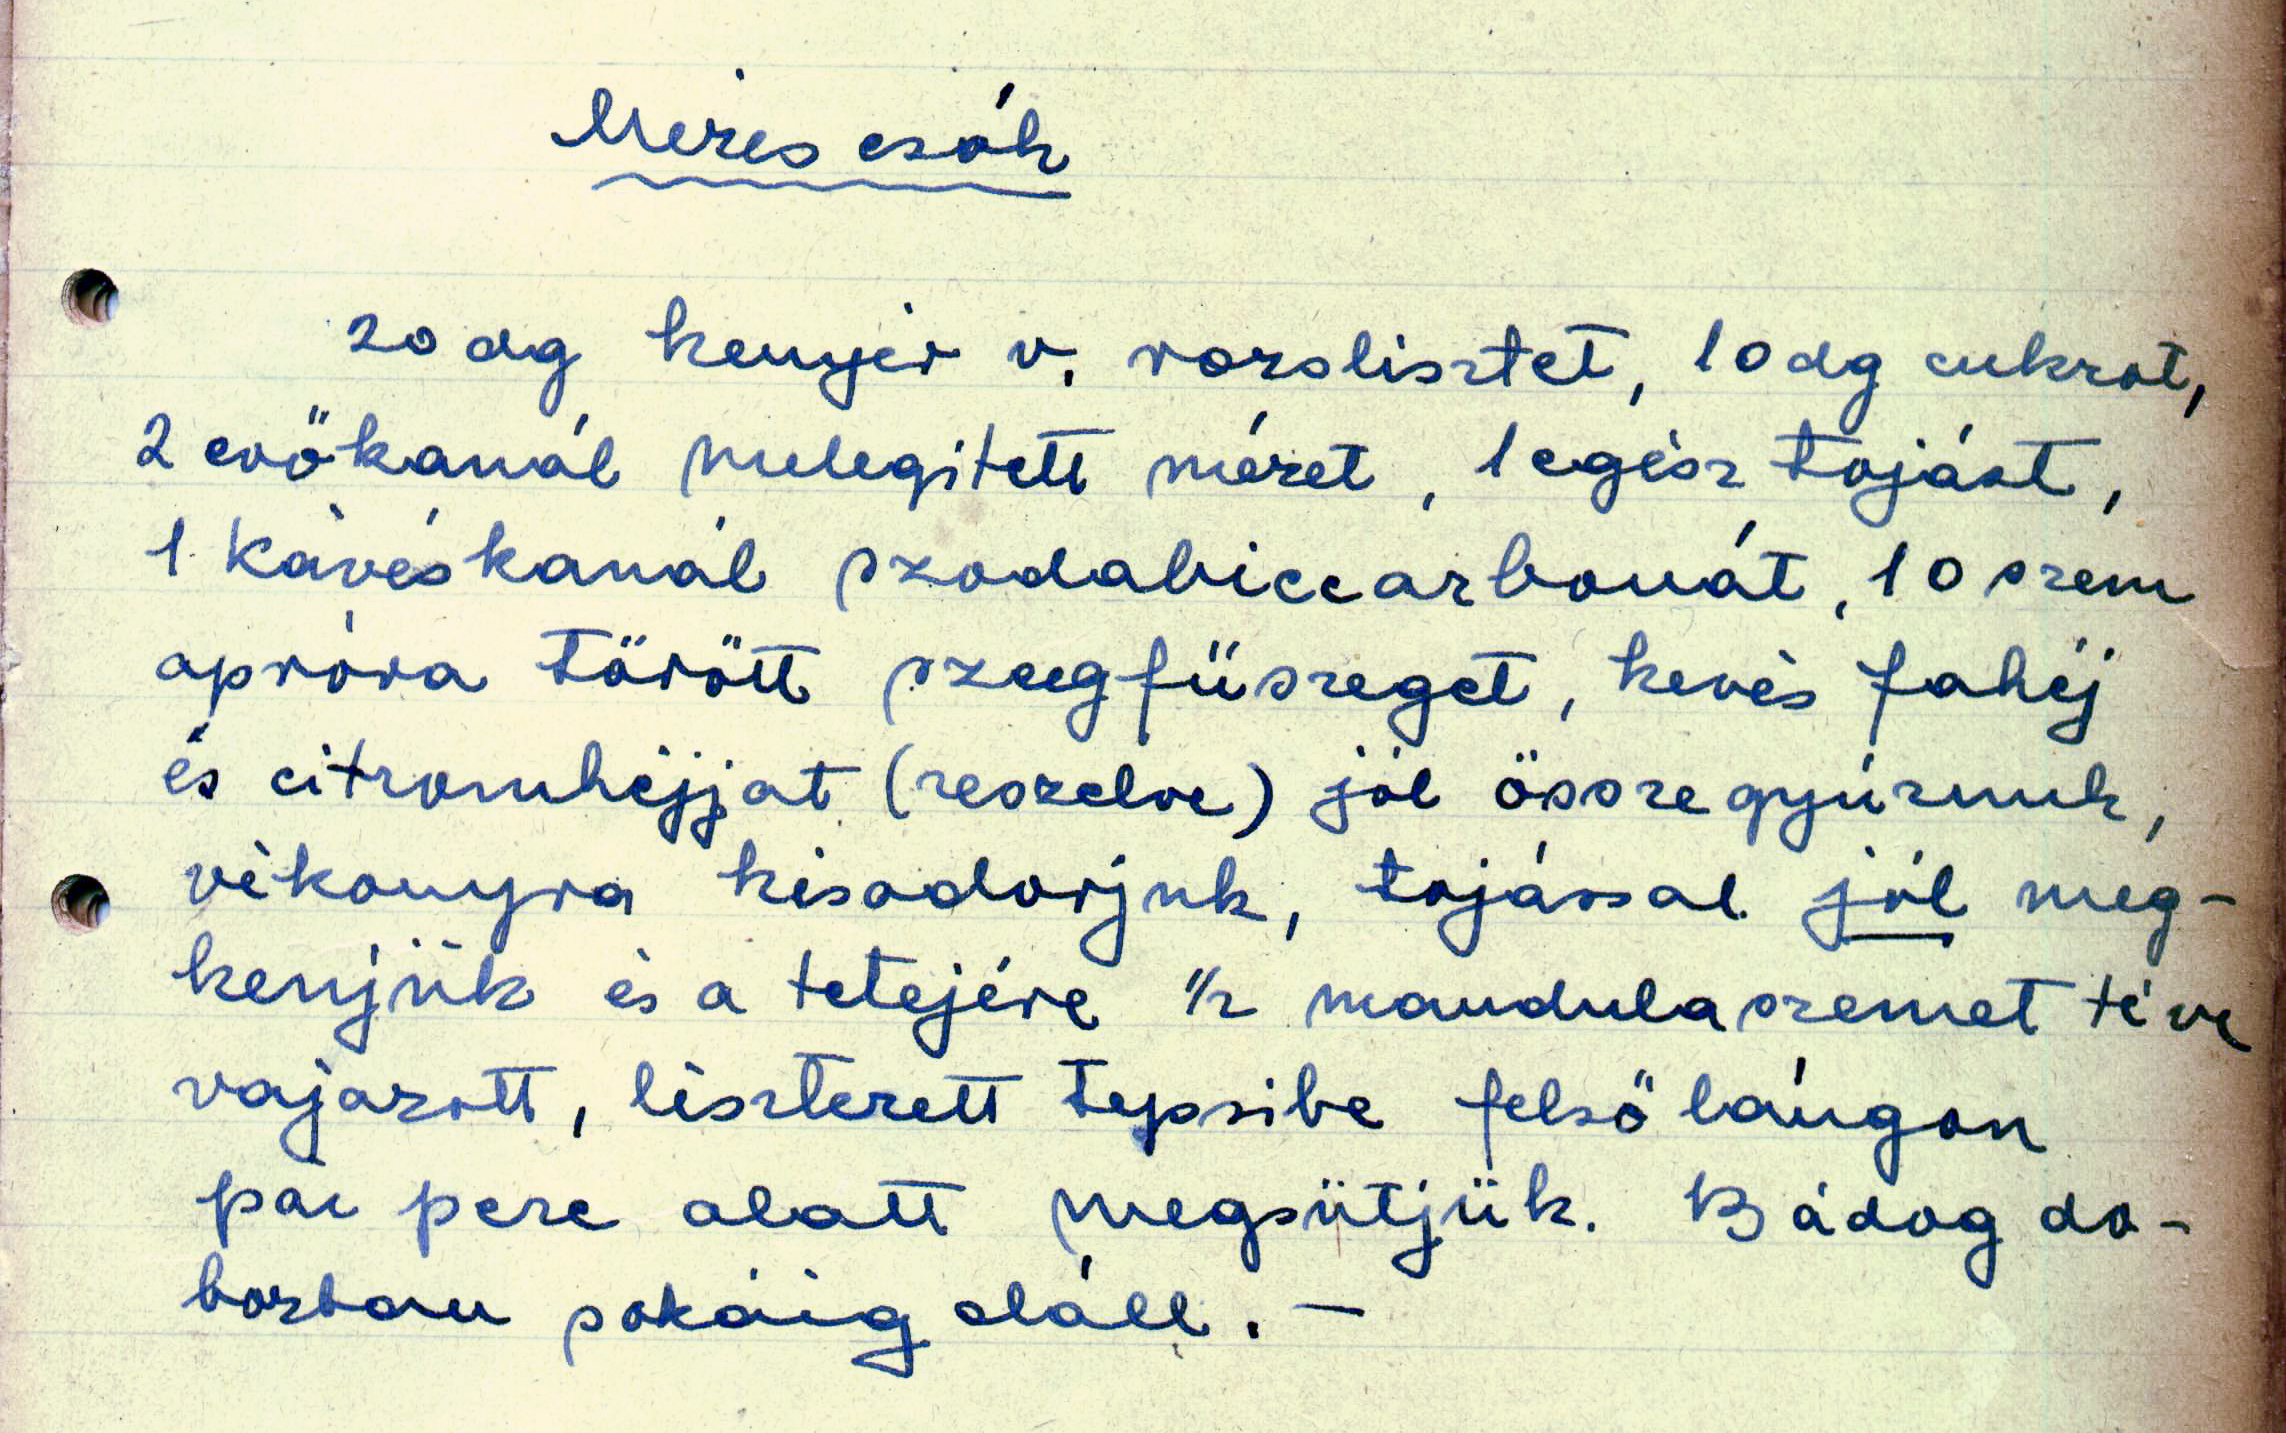 Mézes csók
20 dg kenyér v. rozslisztet, 10 dg cukrot,
2 evőkanál melegitett mézet, 1 egész tojást,
1 kávéskanál szodabiccarbonát, 10 szem
apróra törött szegfüszeget, kevés fahéj
és citromhéjjat (reszelve) jól összegyúrunk,
vékonyra kisodorjuk, tojással jól meg-
kenjük és a tetejére 1/2 mandulaszemet téve
vajazott, lisztezett tepsibe felső lángon
pár perc alatt megsütjük. Bádog do-
bozban sokáig eláll. —